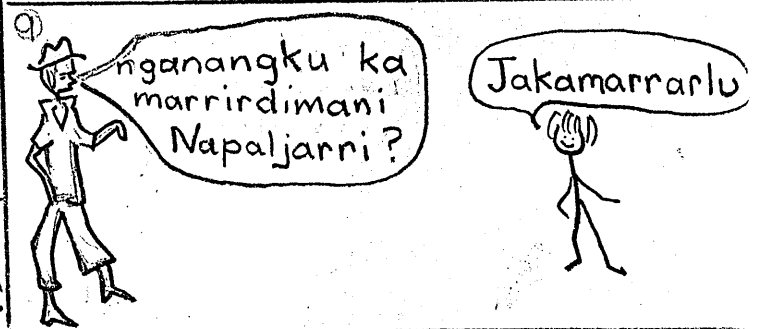 9
nganangku ka
marrirdimani
Napaljarri?
Jakamarrarlu